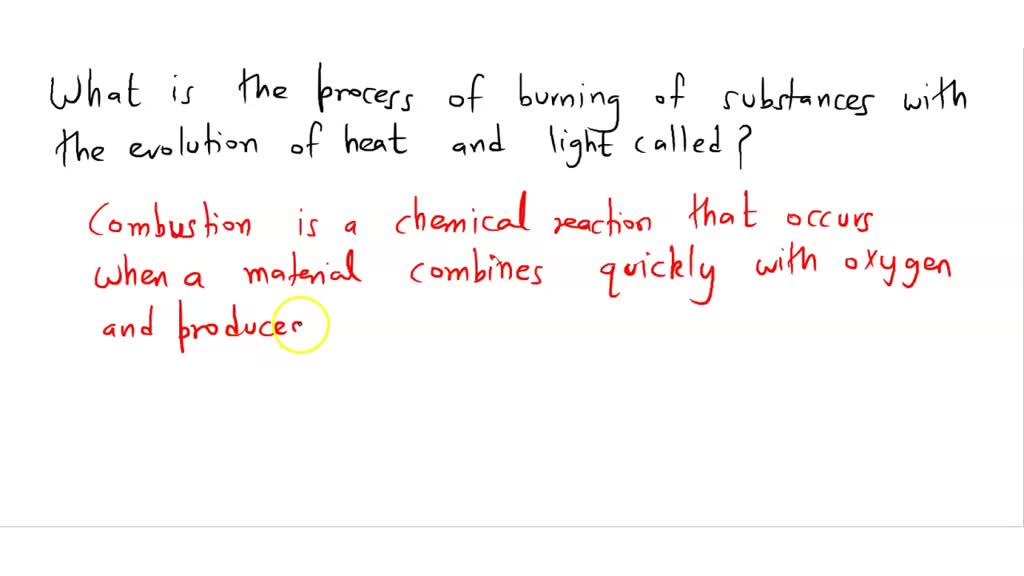 What is the process of burning of substances with
the evolution of heat and light called?
Combustion is a chemical reaction that occurs
when a material combines quickly with oxygen
and produces